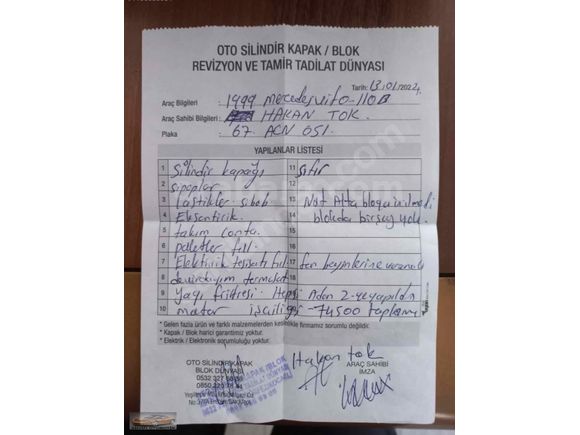 OTO SİLİNDİR KAPAK / BLOK
REVİZYON VE TAMİR TADİLAT DÜNYASI
Tarih: 13.01/2024
Araç Bilgileri : 1999 mercedes vito-110B
Araç Sahibi Bilgileri : HAKAN TOK.
Plaka : 67. ACN 051.
YAPILANLAR LİSTESİ
1 Silindir kapağı 11 sıfır
2 sipaplar 12
3 Lastikler sibob 13 Not Alta bloga inilmedi
4 Eksantirik. 14 blokda birşey yok.
5 takım conta. 15
6 paletler full 16
7 Elektirik tesisatı full 17 fan beyinlerine varana
8 termosat 18
9 yağı filtresi. Hepsi Adan Z-ye yapıldı
10 motor işciliği 74500 toplam
* Gelen fazla ürün ve farklı malzemelerden kesinlikle firmamız sorumlu değildir.
* Kapak / Blok harici garantimiz yoktur.
* Elektrik / Elektronik sorumluluğu yoktur.
OTO SİLİNDİR KAPAK
BLOK DÜNYASI
0532 327
0850
Hakan tok
ARAÇ SAHİBİ
İMZA